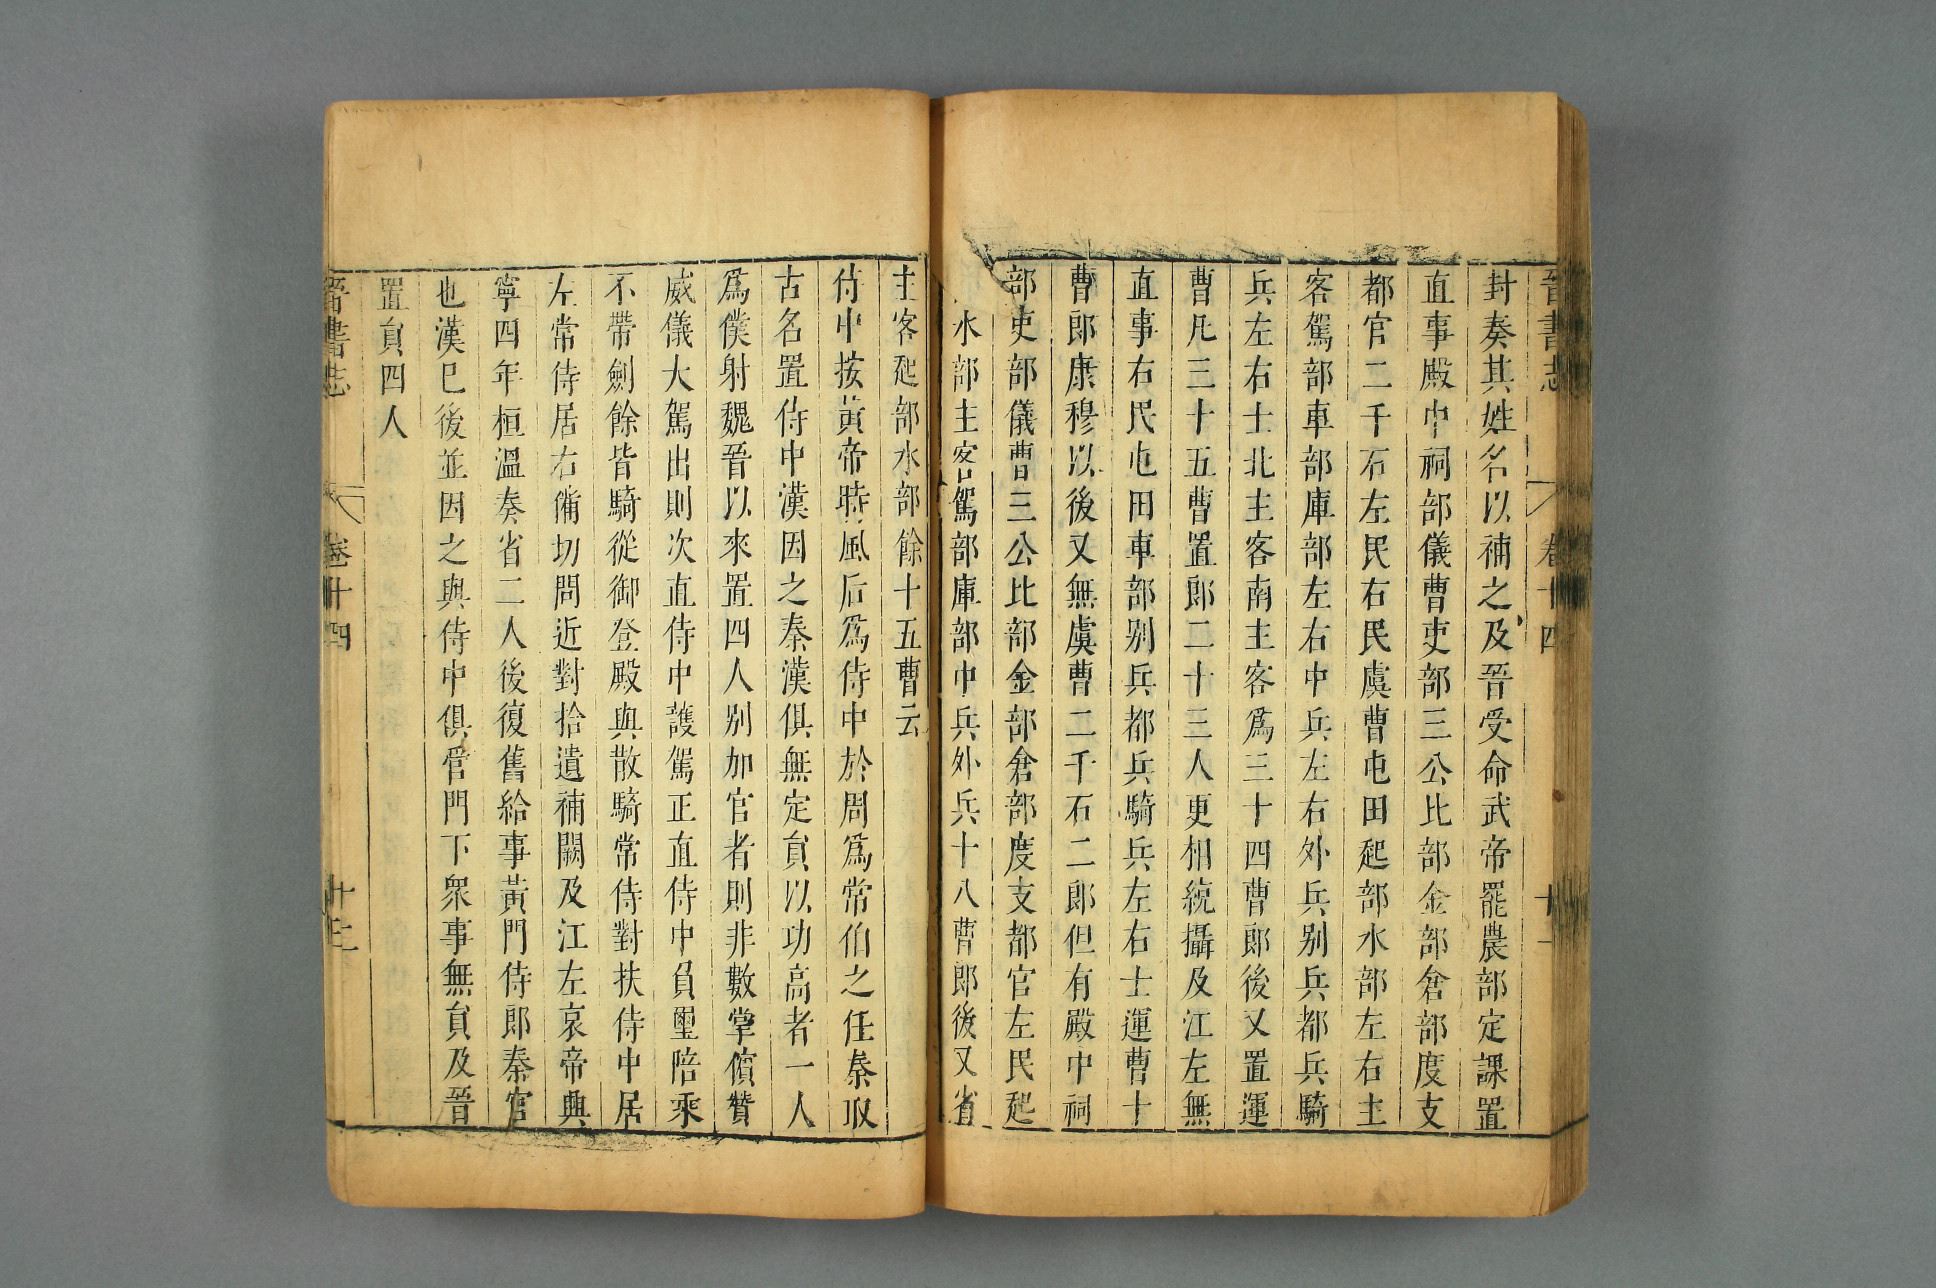 晉書志
卷十四
十一
封奏其姓名以補之及晉受命武帝罷農部定課置
直事殿中祠部儀曹吏部三公比部金部倉部度支
都官二千石左民右民虞曹屯田起部水部左右主
客駕部車部庫部左右中兵左右外兵别兵都兵騎
兵左右士北主客南主客爲三十四曹郎後又置運
曹凡三十五曹置郎二十三人更相統攝及江左無
直事右民屯田車部别兵都兵騎兵左右士運曹十
曹郎康穆以後又無虞曹二千石二郎但有殿中祠
部吏部儀曹三公比部金部倉部度支都官左民起
水部主客駕部庫部中兵外兵十八曹郎後又省
主客起部水部餘十五曹云
侍中按黃帝時風后爲侍中於周爲常伯之任秦取
古名置侍中漢因之秦漢俱無定貟以功高者一人
爲僕射魏晉以來置四人别加官者則非數掌儐贊
威儀大駕出則次直侍中護駕正直侍中負璽陪乘
不帶劍餘皆騎從御登殿與散騎常侍對扶侍中居
左常侍居右備切問近對拾遺補闕及江左哀帝興
寧四年桓溫奏省二人後復舊給事黃門侍郎秦官
也漢已後並因之與侍中俱管門下衆事無貟及晉
置貟四人
晉書志
卷十四